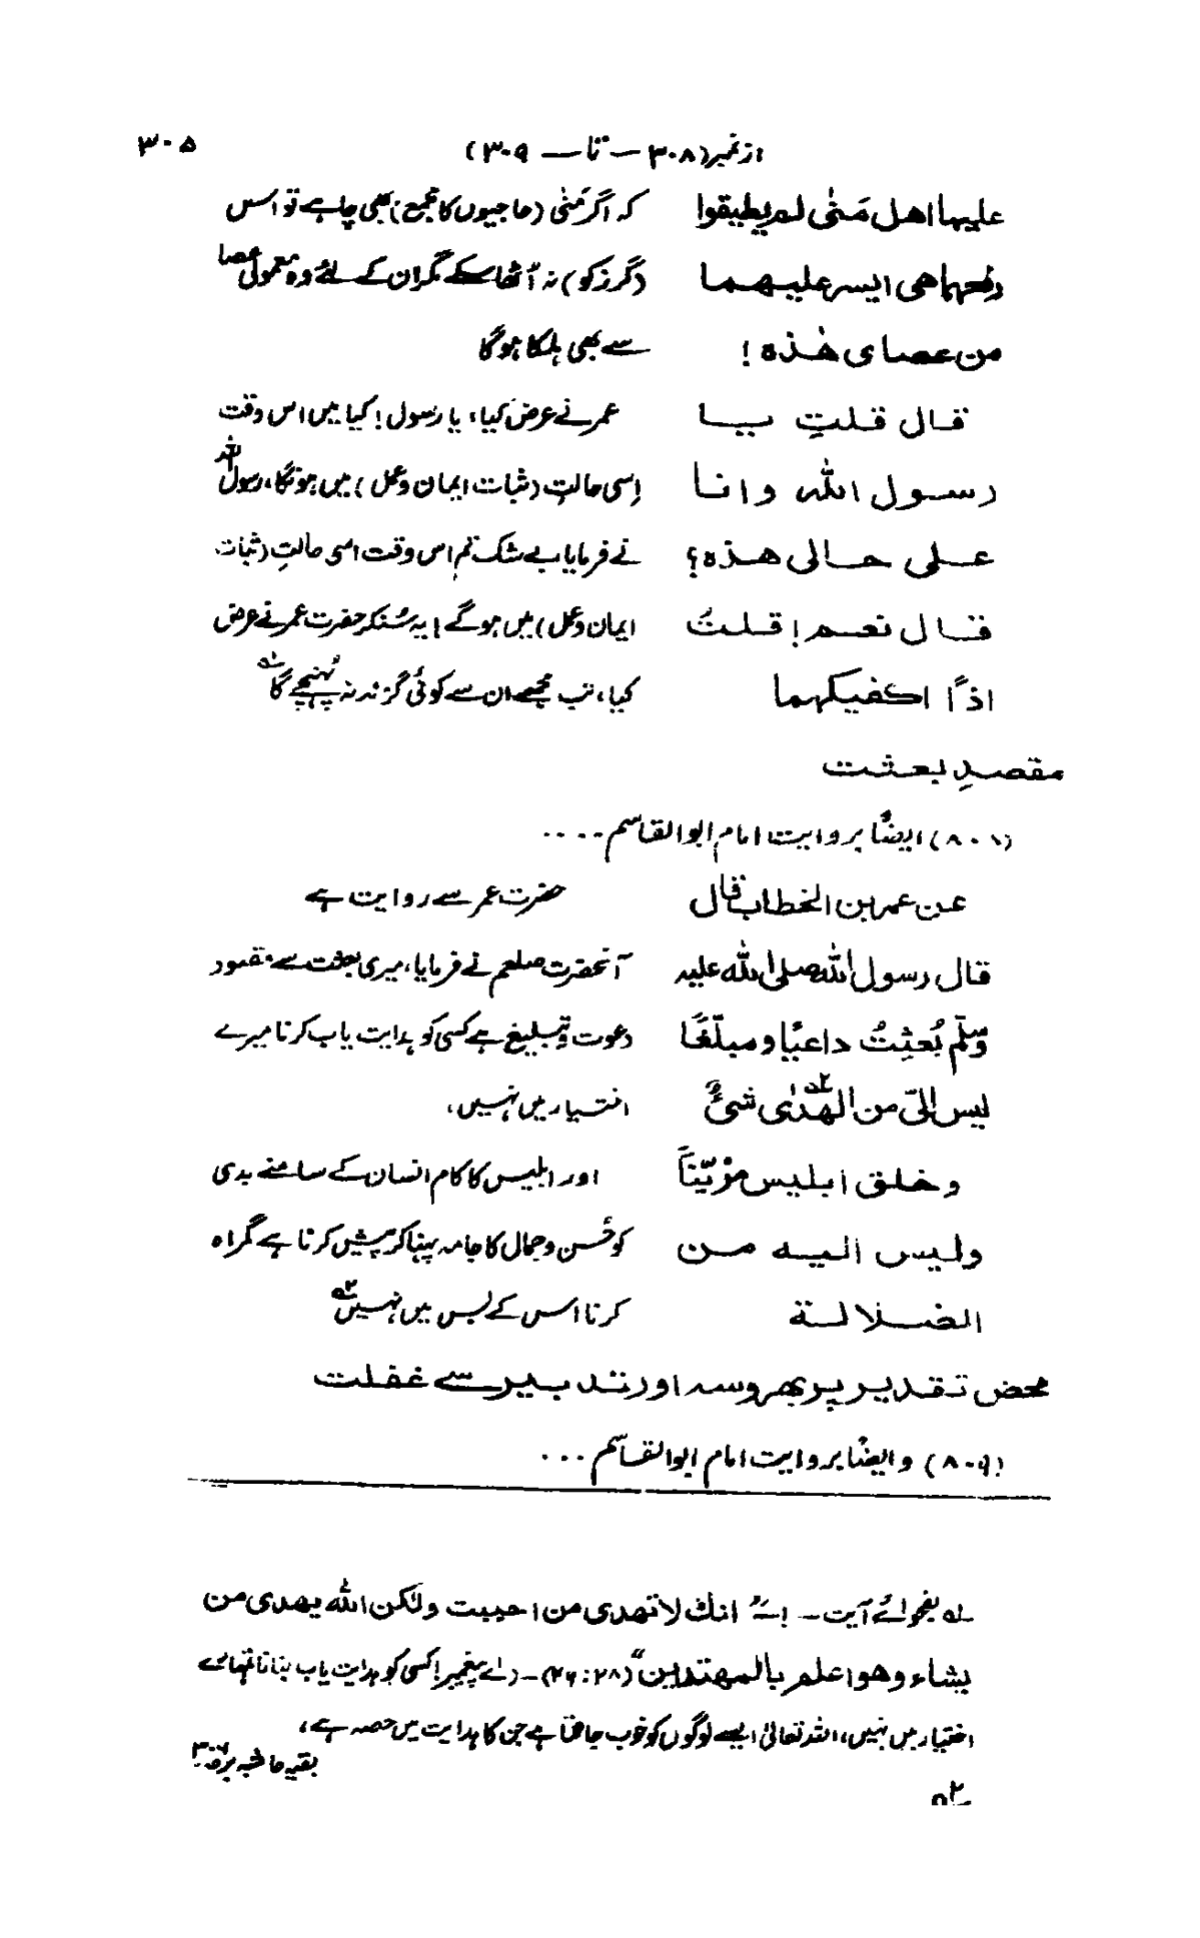 از نمبر (۳۰۸ — تا — ۳۰۹) ۳۰۵
علیها اهل مَنیٰ لم یطیقوا کہ اگر مَنیٰ (حاجیوں کا مجمع) بھی چاہے تو اسس
رفعهما هی ایسر علیهما (گرز کو) نہ اُٹھا سکے مگر ان کے لئے وہ معمولی عصا
من عصای هٰذه ! سے بھی ہلکا ہوگا
قال قلتِ یا عمر نے عرض کیا، یا رسول! کیا میں اس وقت
رسول الله وانا اِسی حالتِ (ثبات ایمان و عمل) میں ہونگا، رسول اللہ
علی حالی هذه؟ نے فرمایا بے شک تم اس وقت اسی حالتِ (ثبات
قال نعم! قلتُ ایمان و عمل) میں ہوگے! یہ سُنکر حضرت عمر نے عرض
اذًا اکفیکهما کیا، تب مجھے ان سے کوئی گزند نہ پہنچے گا
مقصدِ بعثت
(۸۰۸) ایضًا بروایت امام ابوالقاسم ....
عن عمر بن الخطاب قال حضرت عمر سے روایت ہے
قال رسول الله صلی الله علیه آنحضرت صلعم نے فرمایا، میری بعثت سے مقصود
وسلّم بُعثِتُ داعیًا و مبلّغًا دعوت و تبلیغ ہے کسی کو ہدایت یاب کرنا میرے
لیس الیّ من الهدٰی شیٌٔ اختیار میں نہیں،
وخلق ابلیس مزیّنًا اور ابلیس کا کام انسان کے سامنے بدی
ولیس الیه من کو حُسن و جمال کا جامہ پہنا کر پیش کرنا ہے گمراہ
الضلالة کرنا اسس کے بس میں نہیں ۲ے
محض تقدیر پر بھروسہ اور تدبیر سے غفلت
(۸۰۹) و ایضًا بروایت امام ابوالقاسم ...
لہ بفحوائے آیت — انك لا تهدی من احببت ولٰکن الله یهدی من
یشاء وهو اعلم بالمهتدین" (۲۸:۲۶) — (اے پیغمبر! کسی کو ہدایت یاب بنانا تمہارے
اختیار میں نہیں، اللہ تعالیٰ ایسے لوگوں کو خوب جانتا ہے جن کا ہدایت میں حصہ ہے،
بقیہ حاشیہ بر ۳۰۶
۲ے